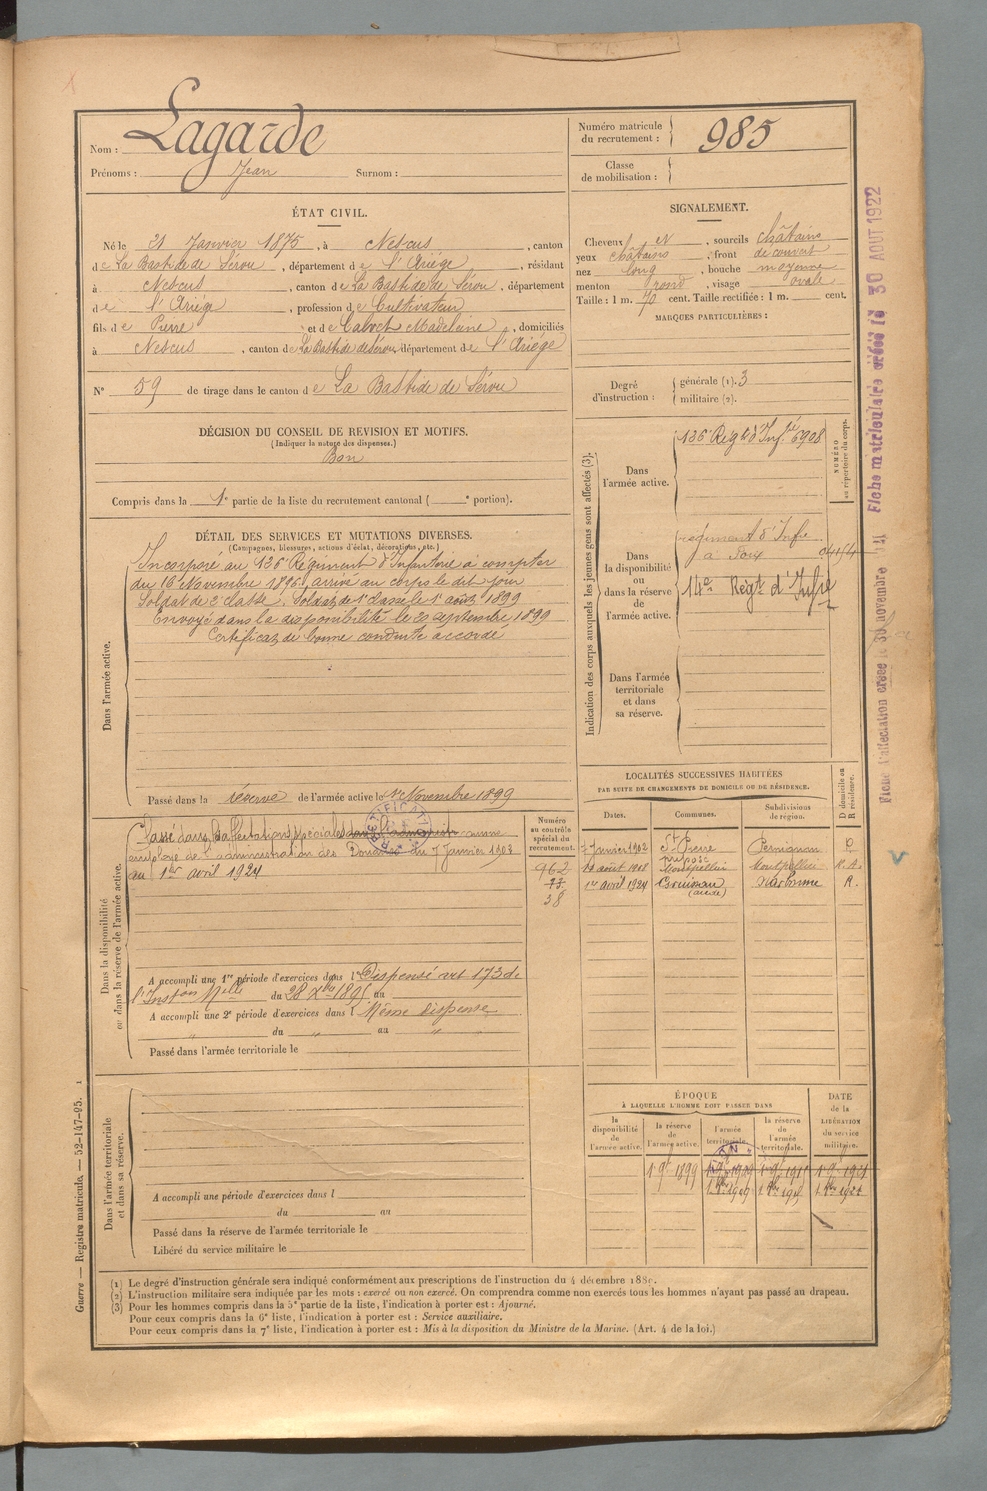 Nom : Lagarde
Prénoms : Jean Surnom :
Numéro matricule du recrutement : 985
Classe de mobilisation :
ÉTAT CIVIL.
Né le 21 Janvier 1875, à Nescus, canton
de La Bastide de Sérou, département de l'Ariége, résidant
à Nescus, canton de La Bastide de Sérou, département
de l'Ariége, profession de Cultivateur
fils de Pierre et de Calvet Madeleine, domiciliés
à Nescus, canton de La Bastide de Sérou département de l'Ariége
N° 59 de tirage dans le canton de La Bastide de Sérou
SIGNALEMENT.
Cheveux N, sourcils châtains
yeux châtains, front découvert
nez long, bouche moyenne
menton rond, visage ovale
Taille : 1 m. 70 cent. Taille rectifiée : 1 m. cent.
MARQUES PARTICULIÈRES :
Degré d'instruction : générale (1). 3
militaire (2).
DÉCISION DU CONSEIL DE REVISION ET MOTIFS.
(Indiquer la nature des dispenses.)
Bon
Compris dans la 1e partie de la liste du recrutement cantonal ( e portion).
DÉTAIL DES SERVICES ET MUTATIONS DIVERSES.
(Campagnes, blessures, actions d'éclat, décorations, etc.)
Dans l'armée active.
Incorporé au 136e Régiment d'Infanterie à compter
du 16 Novembre 1896, arrivé au corps le dit jour
Soldat de 2e classe. Soldat de 1e classe le 1e août 1899
Envoyé dans la disponibilité le 20 septembre 1899
Certificat de bonne conduite accordé
Passé dans la réserve de l'armée active le 1e Novembre 1899
Indication des corps auxquels les jeunes gens sont affectés (3).
NUMÉRO au répertoire du corps.
Dans l'armée active.
136e Régt d'Infie 6908
Dans la disponibilité ou dans la réserve de l'armée active.
régiment d'Infie
à Foix
14e Régt d'Infie
Dans l'armée territoriale et dans sa réserve.
LOCALITÉS SUCCESSIVES HABITÉES
PAR SUITE DE CHANGEMENTS DE DOMICILE OU DE RÉSIDENCE.
Dates. Communes. Subdivisions de région. D domicile ou R résidence.
7 Janvier 1902 St Pierre Perpignan D
19 août 1908 Montpellier Montpellier
1er avril 1924 Gruissan (aude) Narbonne R.
Dans la disponibilité ou dans la réserve de l'armée active.
Numéro au contrôle spécial du recrutement.
Classé dans les affectations spéciales dans l'administr comme
employé de l'administration des Douanes du 7 Janvier 1902
au 1er avril 1924
962
73
38
RECTIFICATION
A accompli une 1re période d'exercices dans l Dispensé art 173 de
l'Inston Mlle du 28 Xbre 1895 au
A accompli une 2e période d'exercices dans l Même dispense
du " au "
Passé dans l'armée territoriale le
Dans l'armée territoriale et dans sa réserve.
A accompli une période d'exercices dans l
du au
Passé dans la réserve de l'armée territoriale le
Libéré du service militaire le
ÉPOQUE
À LAQUELLE L'HOMME DOIT PASSER DANS
la disponibilité de l'armée active.
la réserve de l'armée active.
l'armée territoriale.
la réserve de l'armée territoriale.
DATE de la LIBÉRATION du service militaire.
1 9bre 1899 1 9bre 1909
(1) Le degré d'instruction générale sera indiqué conformément aux prescriptions de l'instruction du 4 décembre 1889.
(2) L'instruction militaire sera indiquée par les mots : exercé ou non exercé. On comprendra comme non exercés tous les hommes n'ayant pas passé au drapeau.
(3) Pour les hommes compris dans la 5e partie de la liste, l'indication à porter est : Ajourné.
Pour ceux compris dans la 6e liste, l'indication à porter est : Service auxiliaire.
Pour ceux compris dans la 7e liste, l'indication à porter est : Mis à la disposition du Ministre de la Marine. (Art. 4 de la loi.)
Guerre — Registre matricule. — 52-147-95. 1
Fiche matriculaire créée le 30 AOUT 1922
Fiche d'affectation créée le 30 novembre